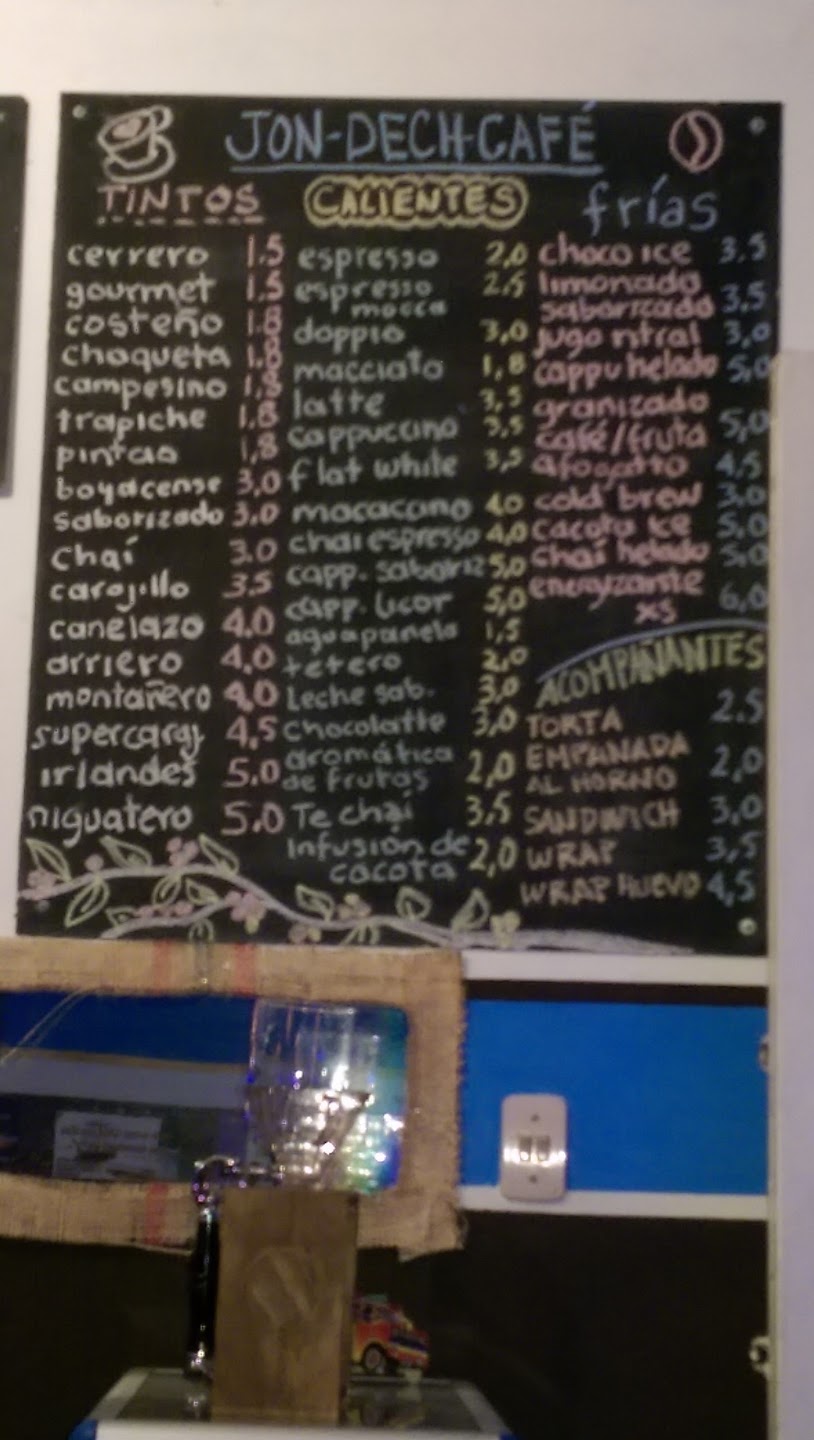 JON-DECH-CAFÉ
TINTOS
cerrero 1.5
gourmet 1.5
costeño 1.8
chaqueta 1.8
campesino 1.8
trapiche 1.8
pintao 1,8
boyacense 3.0
saborizado 3.0
chaí 3.0
carajillo 3.5
canelazo 4.0
arriero 4.0
montañero 4.0
supercaraj 4.5
irlandes 5.0
niguatero 5.0
CALIENTES
espresso 2,0
espresso 2,5
mocca
doppio 3,0
macciato 1,8
latte 3,5
cappuccino 3,5
flat white 3,5
macacano 4.0
chai espresso 4,0
capp. saboriz 5,0
capp. licor 5,0
aguapanela 1,5
tetero 2,0
Leche sab. 3,0
chocolatte 3,0
aromática
de frutas 2,0
Te chaí 3,5
infusión de
cacota 2,0
frías
choco ice 3.5
limonada
saborizado 3,5
jugo ntral 3,0
cappu helado 5,0
granizado
café/fruta 5,0
afogatto 4,5
cold brew 3,0
cacota ice 5,0
chaí helado 5,0
energizante
xs 6,0
ACOMPAÑANTES
TORTA 2.5
EMPANADA
AL HORNO 2,0
SANDWICH 3,0
WRAP 3,5
WRAP HUEVO 4,5